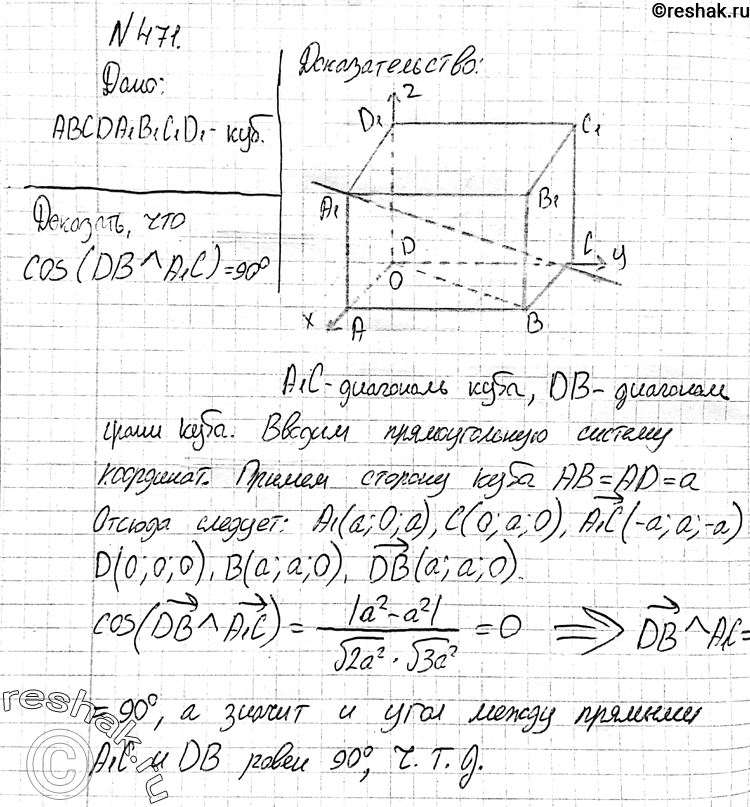 ©reshak.ru
N 471.
Дано:
ABCDA₁B₁C₁D₁ - куб.
Доказать, что
cos (DB ^ A₁C) = 90°
Доказательство:
z
D₁
C₁
A₁
B₁
D
C
y
O
x
A
B
A₁C - диагональ куба, DB - диагональ
грани куба. Вводим прямоугольную систему
координат. Примем сторону куба AB = AD = a
Отсюда следует: A₁(a; 0; a), C(0; a; 0), A₁C(-a; a; -a)
D(0; 0; 0), B(a; a; 0), DB(a; a; 0).
cos(DB ^ A₁C) = |a² - a²| / √2a² · √3a² = 0 ⇒ DB ^ A₁C =
= 90°, а значит и угол между прямыми
A₁C и DB равен 90°, ч. т. д.
reshak.ru
©